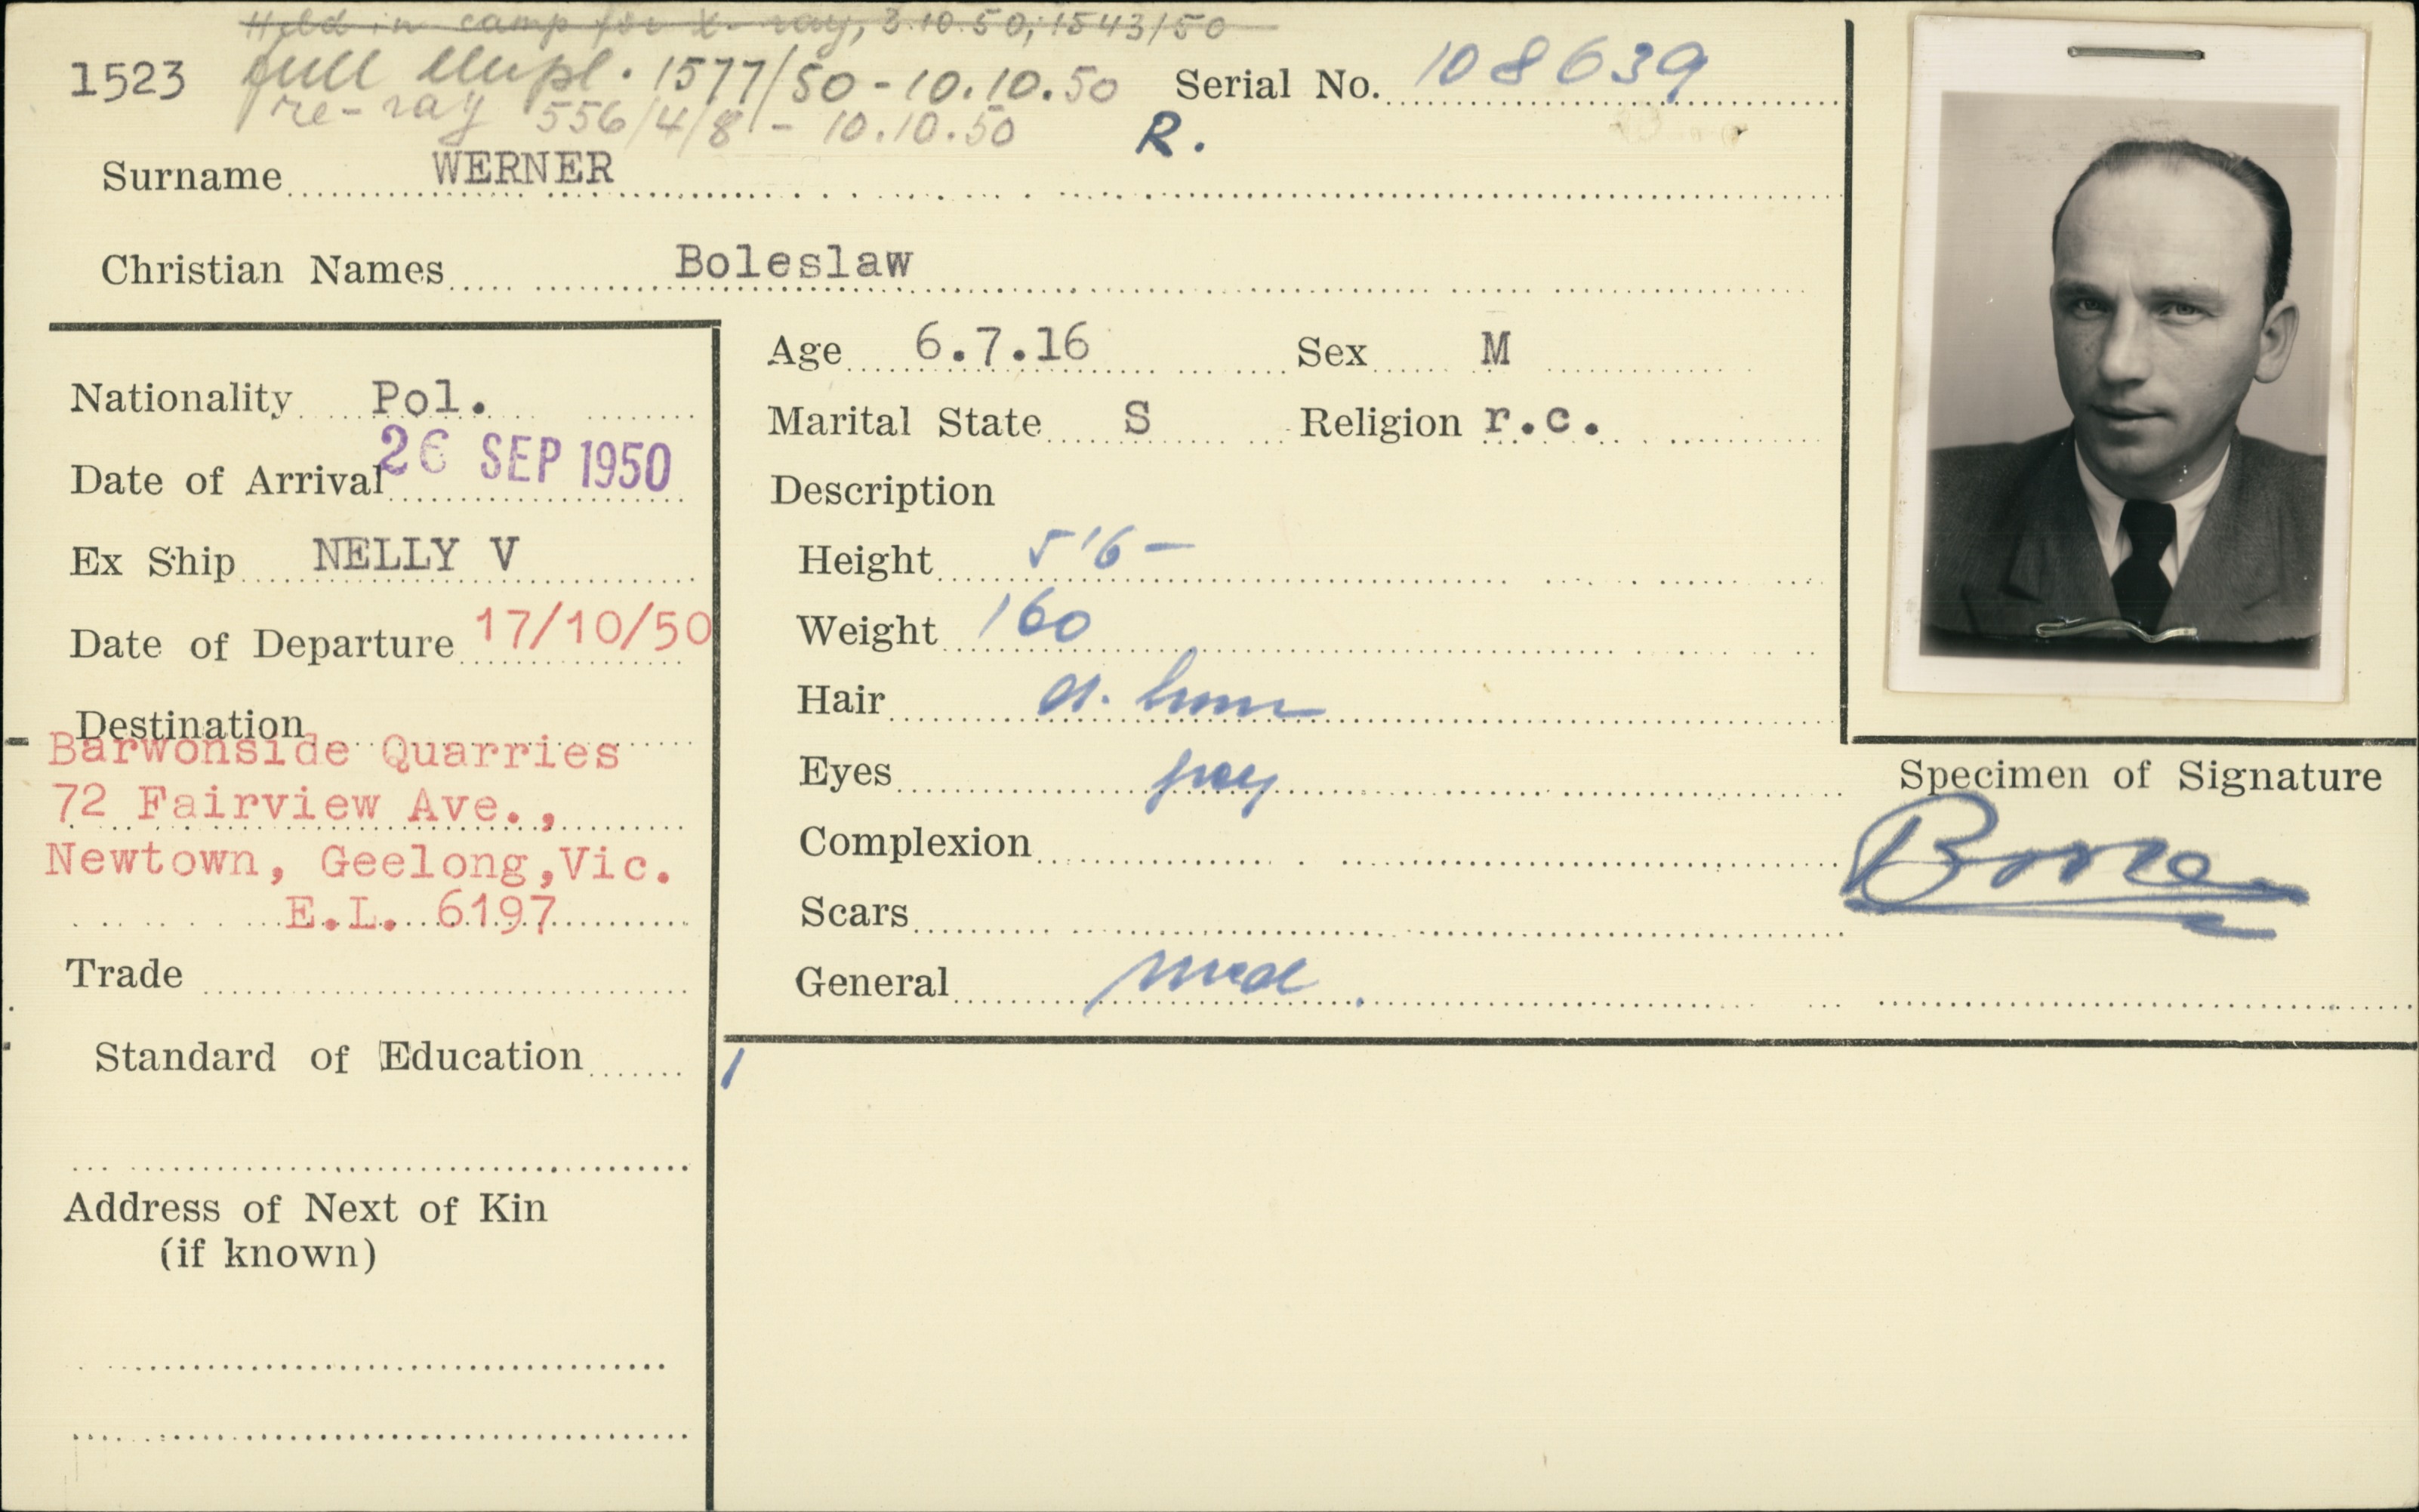 Held in camp for X-ray, 3.10.50, 1543/50
1523 full Empl. 1577/50 - 10.10.50 Serial No. 108639
re-ray 556/4/8 - 10.10.50 R.
Surname WERNER
Christian Names Boleslaw
Age 6.7.16 Sex M
Nationality Pol.
Marital State S Religion r.c.
Date of Arrival 26 SEP 1950
Description
Ex Ship NELLY V
Height 5'6-
Date of Departure 17/10/50
Weight 160
Hair d.
Destination
Barwonside Quarries
72 Fairview Ave.,
Newtown, Geelong,Vic.
E.L. 6197
Eyes grey
Complexion
Scars
General med.
Specimen of Signature
Trade
Standard of Education
Address of Next of Kin
(if known)